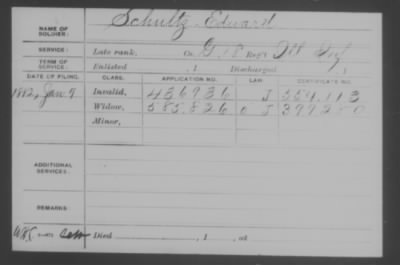 NAME OF SOLDIER: Schultz, Edward
SERVICE: Late rank, Co. G, 18 Reg't Ill Inf
TERM OF SERVICE: Enlisted , 1 Discharged , 1
DATE OF FILING. CLASS. APPLICATION NO. LAW. CERTIFICATE NO.
1882, Jan 9 Invalid, 436936 J 384.113
Widow, 585.826 J 397250
Minor,
ADDITIONAL SERVICES:
REMARKS:
Died , 1 , at